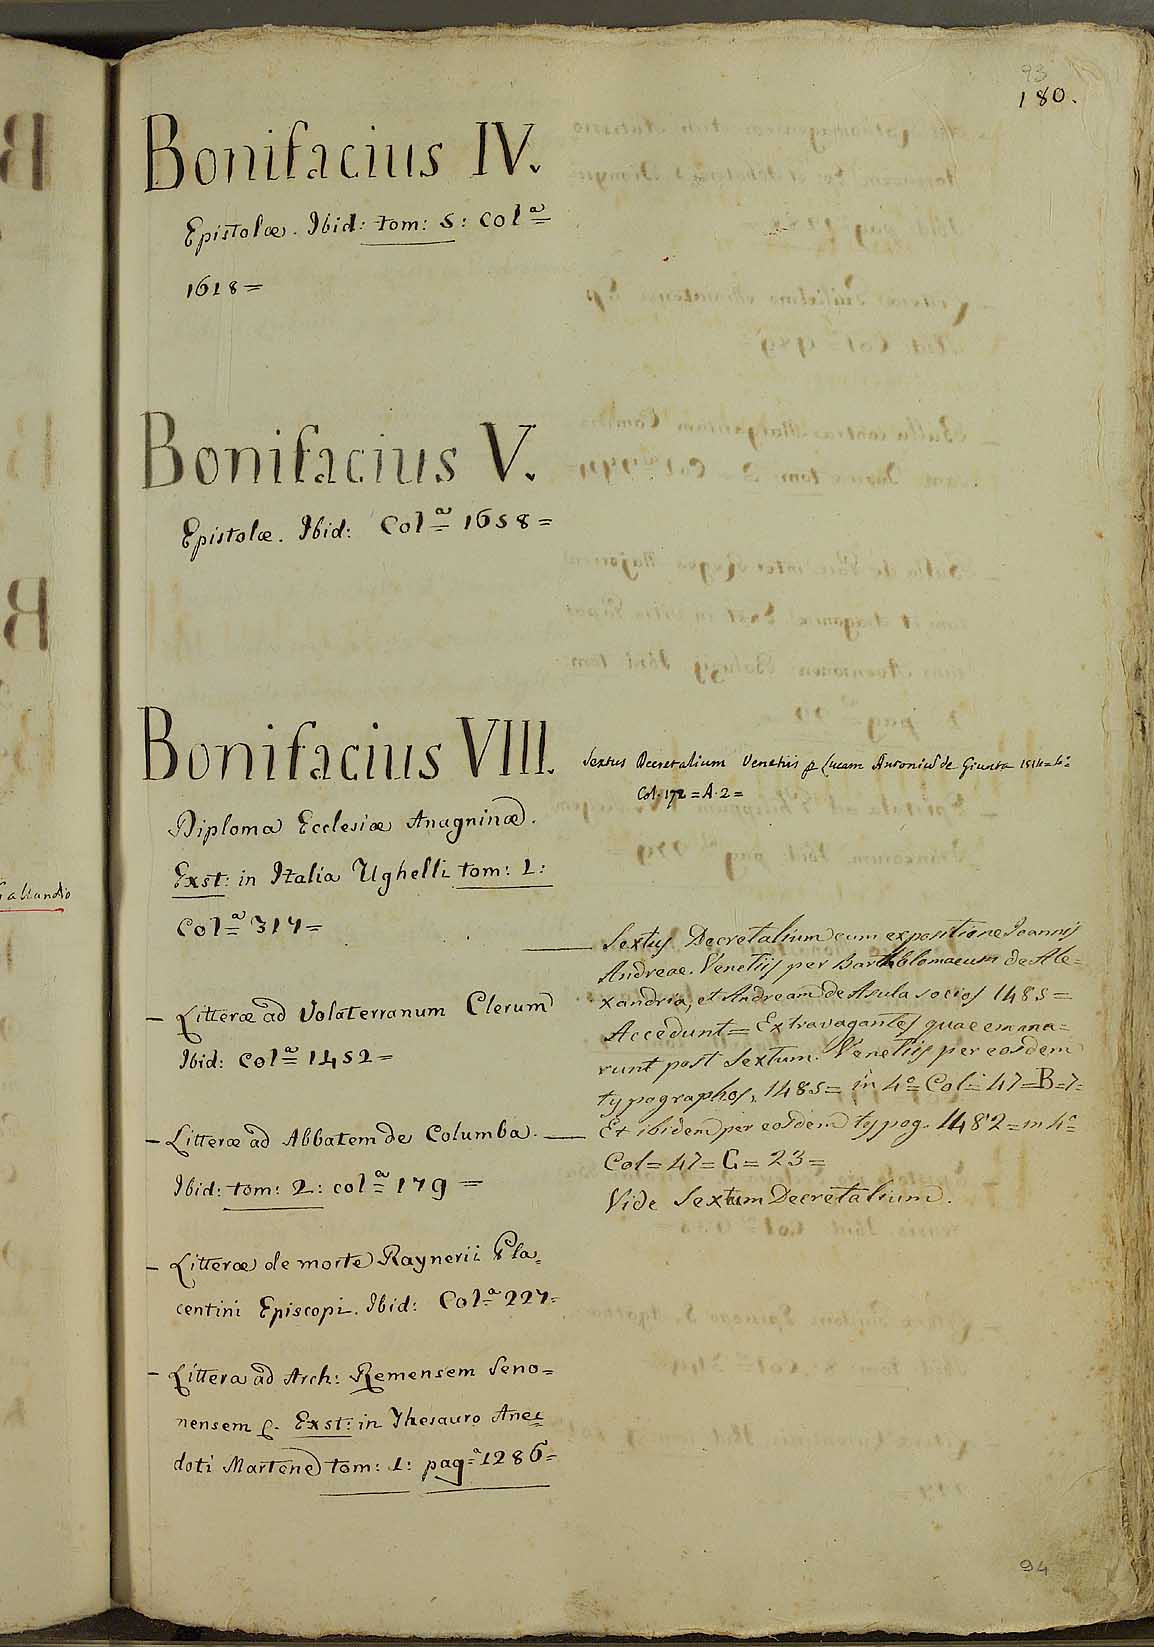 93
180.
Bonifacius IV.
Epistolæ. Ibid: tom: 5: Colª
1618=
Bonifacius V.
Epistolæ. Ibid: Colª 1658=
Bonifacius VIII.
Diploma Ecclesiæ Anagninæ.
Exst: in Italia Ughelli tom: 1:
Colª 317=
– Litteræ ad Volaterranum Clerum
Ibid: Colª 1452=
– Litteræ ad Abbatem de Columba.
Ibid: tom: 2: colª 179=
– Litteræ de morte Raynerii Pla=
centini Episcopi. Ibid: Colª 227=
– Littera ad Arch: Remensem Seno=
nensem &. Exst: in Thesauro Anec=
doti Martene tom: 1: pagª 1286=
Sextus Decretalium Venetiis p Lucam Antoniu de Giunta 1514=4º
Col. 172=A.2=
Sextus Decretalium cum expositione Joannis
Andreae. Venetiis per Bartholomaeum de Ale=
xandria, et Andream de Asula socios 1485=
Accedunt= Extravagantes quae emana=
runt post Sextum. Venetiis per eosdem
typographos, 1485= in 4º Col= 47=B=7=
Et ibidem per eosdem typog. 1482=in 4º=
Col=47=G=23=
Vide Sextum Decretalium.
94